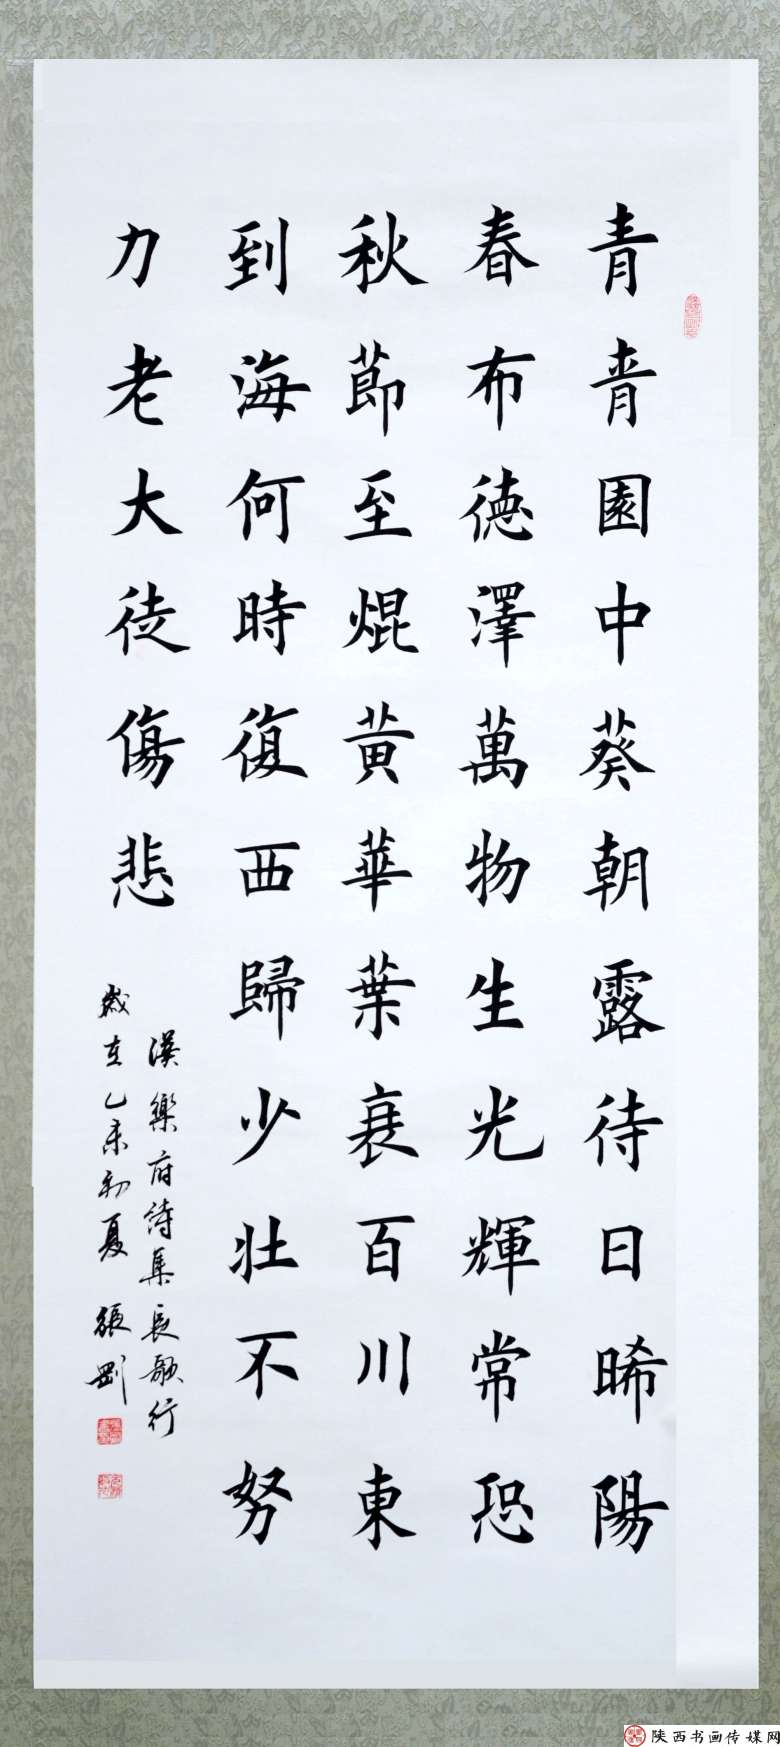 青青園中葵朝露待日晞陽
春布德澤萬物生光輝常恐
秋節至焜黃華葉衰百川東
到海何時復西歸少壯不努
力老大徒傷悲
漢樂府詩集長歌行
歲在乙未初夏 張剛
陕西书画传媒网